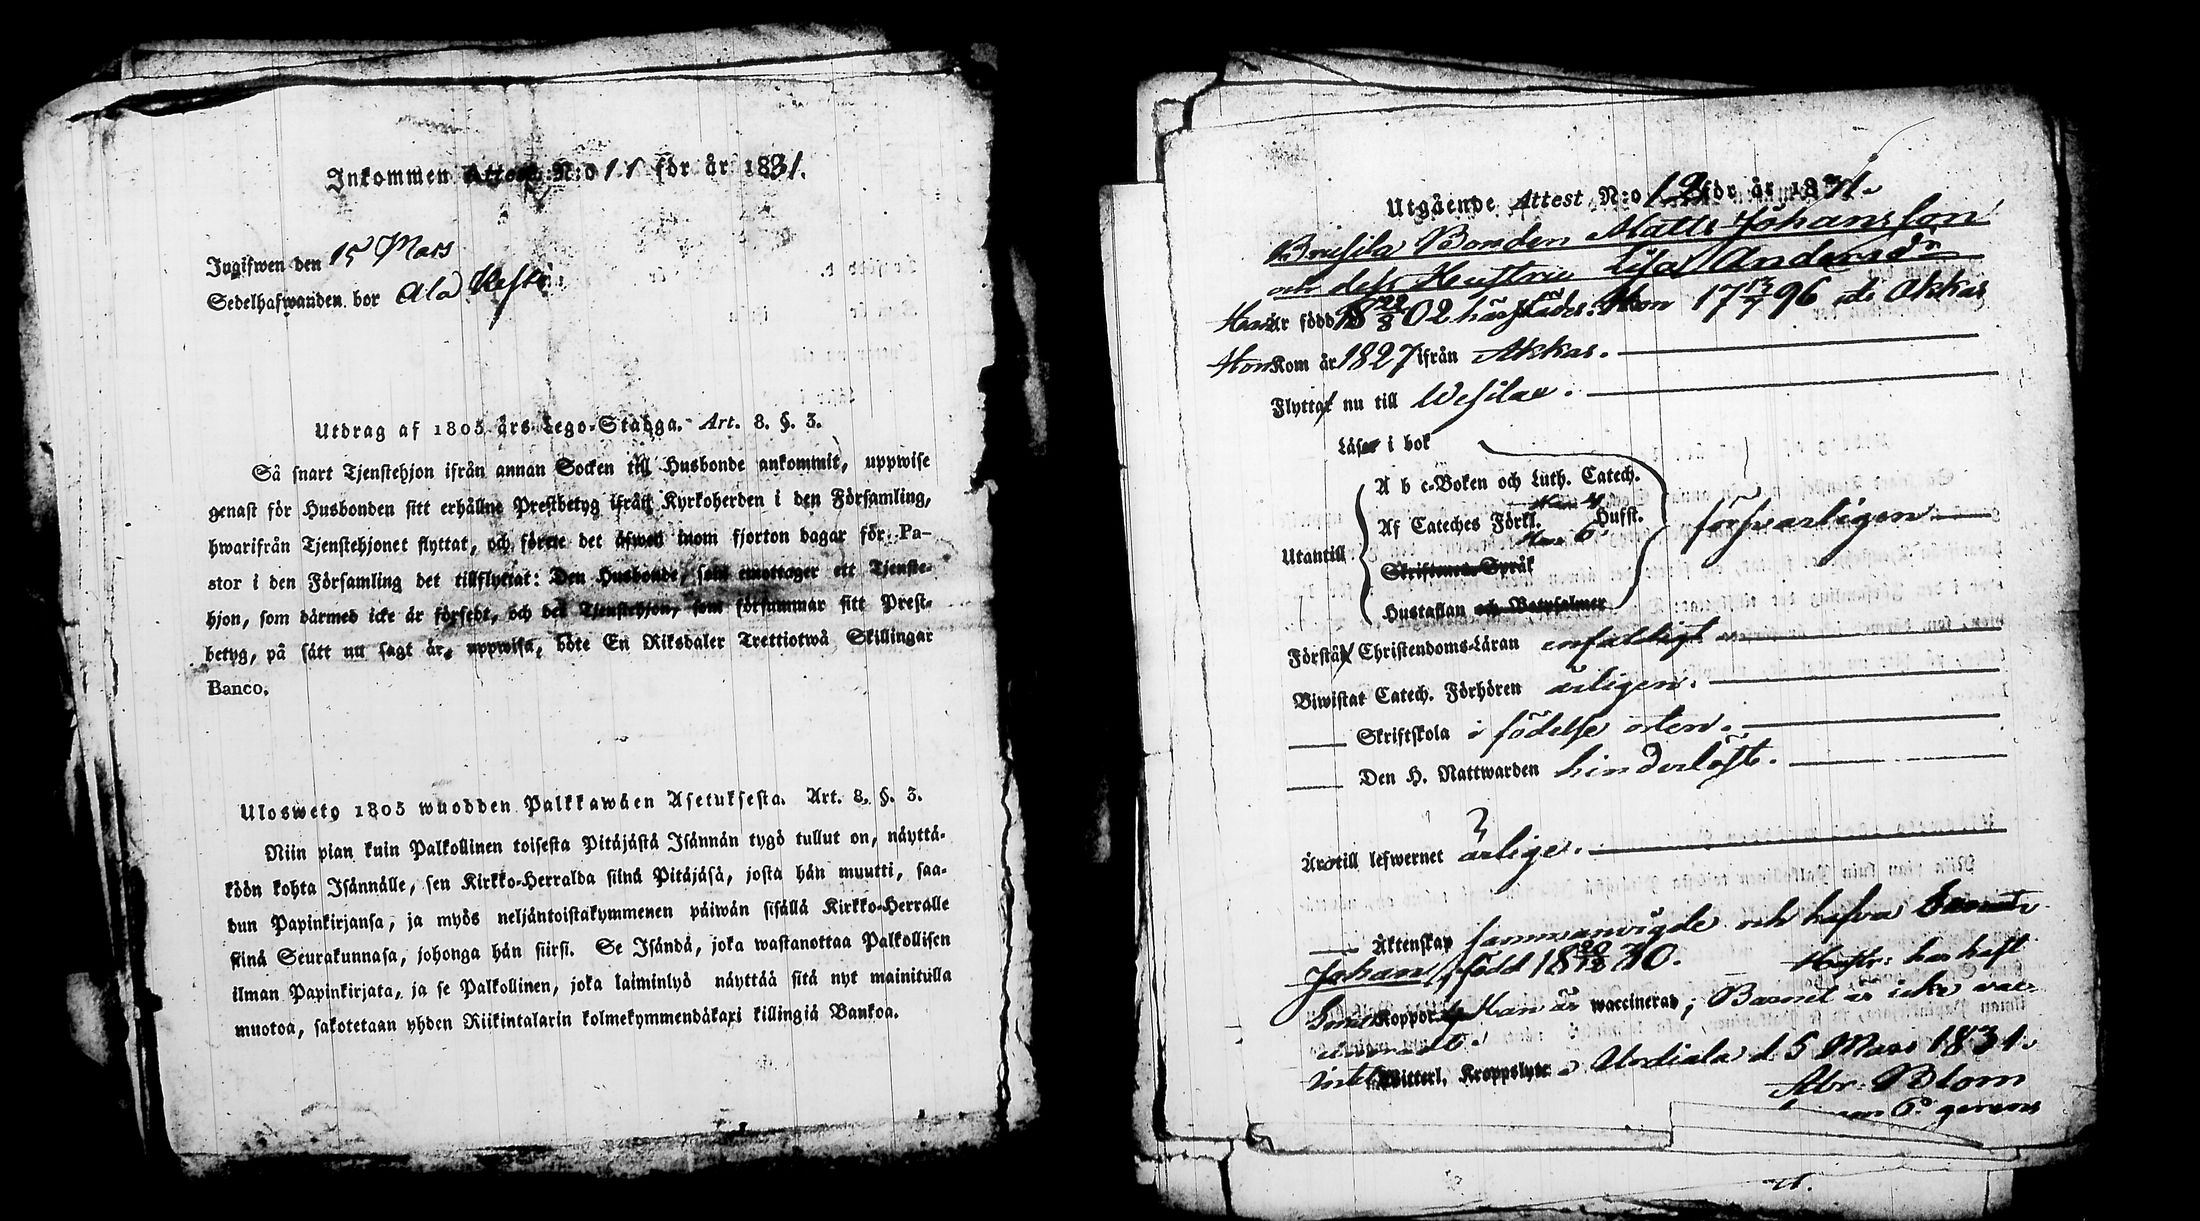 Inkommen Attest N:o 11 för år 1831.
Ingifwen den 15 Mars
Sedelhafwanden bor Ala
Utdrag af 1805 års Lego-Stadga. Art. 8. §. 3.
Så snart Tjenstehjon ifrån annan Socken till Husbonde ankommit, uppwise
genast för Husbonden sitt erhållne Prestbetyg ifrån Kyrkoherden i den Församling,
hwarifrån Tjenstehjonet flyttat, och förete det äfwen inom fjorton dagar för Pa-
stor i den Församling det tillflyttat: Den Husbonde, som emottager ett Tjenste-
hjon, som därmed icke är försedt, och det Tjenstehjon, som försummar sitt Prest-
betyg, på sätt nu sagt är, uppwisa, böte En Riksdaler Trettiotwå Skillingar
Banco.
Ulosweto 1805 wuodden Palkkawäen Asetuksesta. Art. 8. §. 3.
Niin pian kuin Palkollinen toisesta Pitäjästä Isännän tygö tullut on, näyttä-
köön kohta Isännälle, sen Kirkko-Herralda siinä Pitäjäsä, josta hän muutti, saa-
dun Papinkirjansa, ja myös neljäntoistakymmenen päiwän sisällä Kirkko-Herralle
siinä Seurakunnasa, johonga hän siirsi. Se Isändä, joka wastanottaa Palkollisen
ilman Papinkirjata, ja se Palkollinen, joka laiminlyö näyttää sitä nyt mainitulla
muotoa, sakotetaan yhden Riikintalarin kolmekymmendäkaxi killingiä Bankoa.
Utgående Attest N:o 12 för år 1831.
Bonden Matts Johansson
och dess Hustru Lisa Andersdr
Han är född 18 22/8 02 härstädes. Hon 17 13/7 96 i Akkas
Hon Kom år 1827 ifrån Akkas.
Flytta nu till Wesilax.
Läsa i bok
A b c-Boken och Luth. Catech.
Af Cateches Förkl. Hufst.
Utantill
Skriftenes Språk
Hustaflan och Botpsalmer
försvarligen
Förstå Christendoms-Läran enfaldigt
Biwistat Catech. Förhören årligen.
Skriftskola i födelse orten.
Den H. Nattwarden hinderlöst.
Äro till lefwernet ärlige.
Äktenskap sammanvigde och hafva Sonen
Johan, född 18 20/12 30. Hustr: har haft
Koppor, Han är waccinerad; Barnet är icke vac-
cineradt.
intet Witterl. Kroppslyte. Urdiala d 5 Mars 1831.
Abr: Blom
gerens